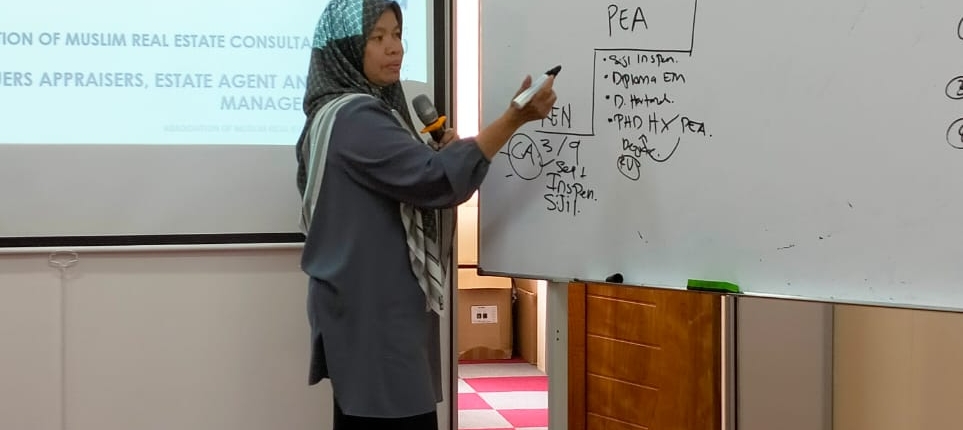 TION OF MUSLIM REAL ESTATE CONSULTA
UERS APPRAISERS, ESTATE AGENT AN
MANAGE
ASSOCIATION OF MUSLIM REAL
PEA
• Sesi Inspen.
• Diploma EM
• D.
• PHD HX PEA.
Degree
EN
CA 3/9
Sesi
Inspen.
Sijil.